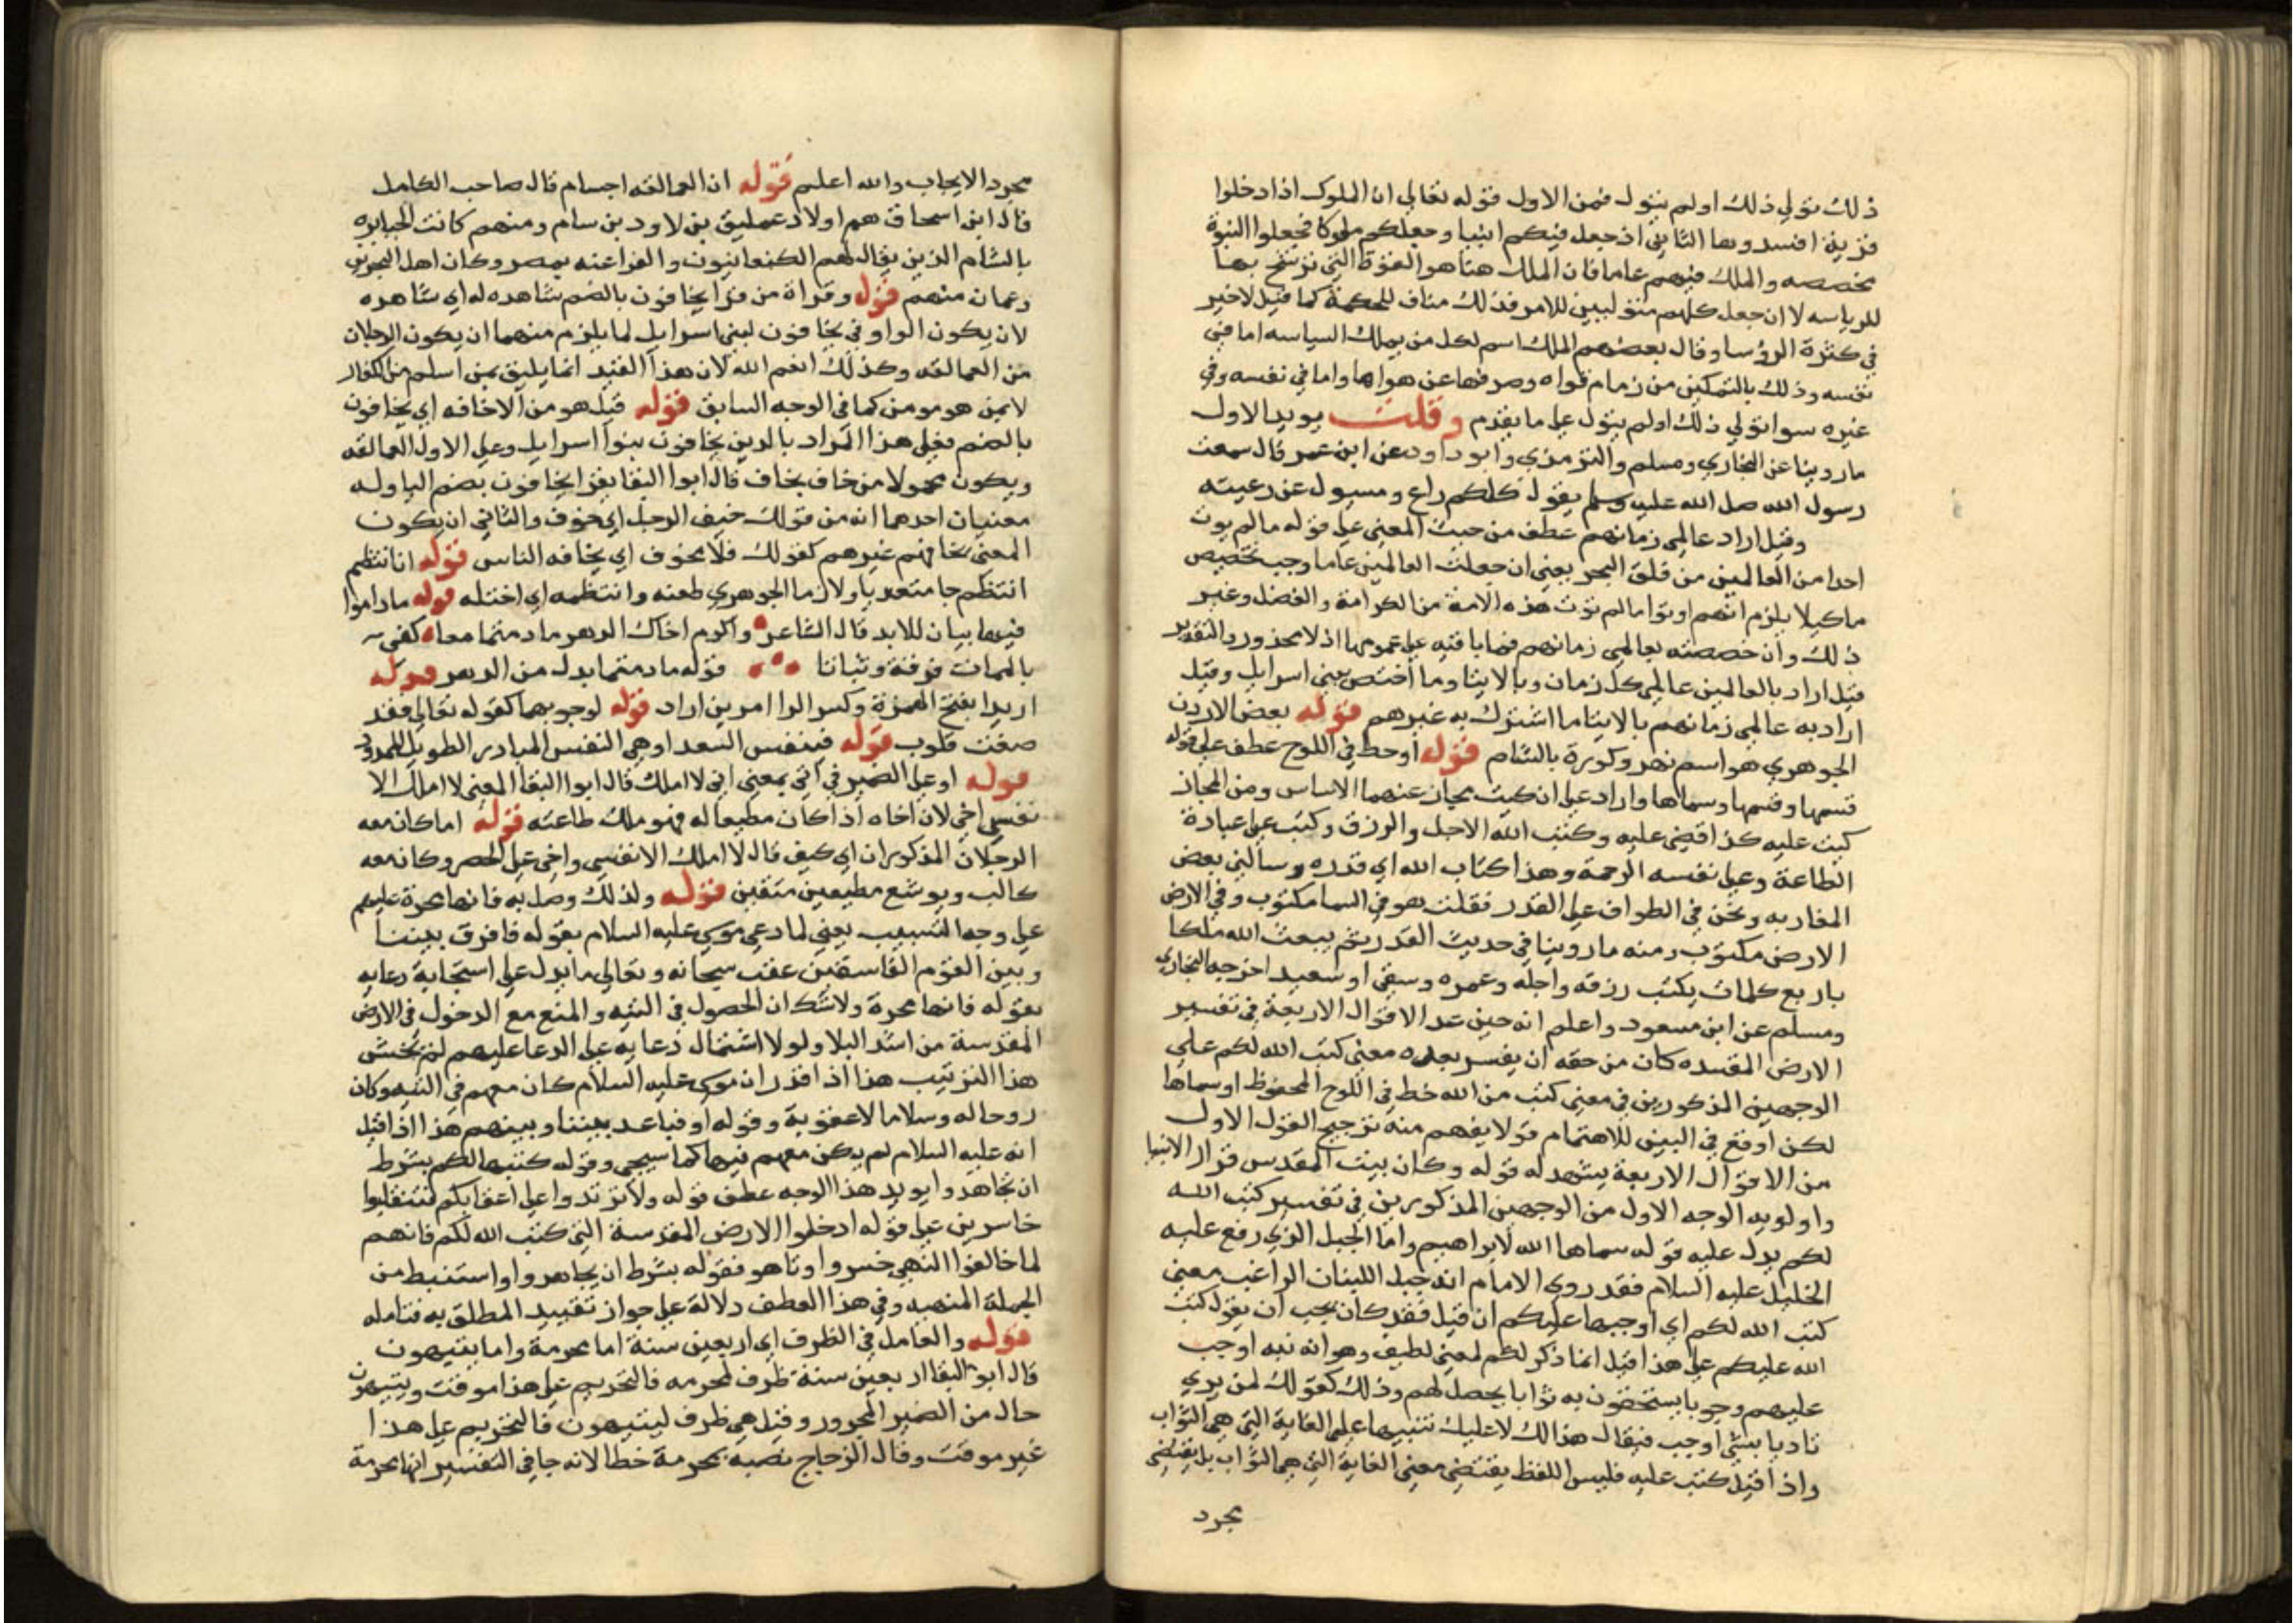 ذلك تولي ذلك اولم يتول فمن الاول قوله تعالي ان الملوك اذا دخلوا
قرية افسدوها الثاني اذ جعل فيكم انبيا وجعلكم ملوكا فجعلوا النبوة
مخصصه والملك فيهم عاما فان الملك هنا هو القوة التي ترشح بها
للرياسه لا ان جعل كلهم متولبين للامر فذلك مناف للحكمة كما قيل لا خير
في كثرة الروسا وقال بعضهم الملك اسم لكل من يملك السياسه اما في
نفسه وذلك بالتمكين من زمام قواه وصرفها عن هواها واما في نفسه وفي
غيره سوا تولي ذلك اولم يتول علي ما تقدم وقلت يويد الاول
ما روينا عن البخاري ومسلم والترمذي وابو داود عن ابن عمر قال سمعت
رسول الله صلي الله عليه وسلم يقول كلكم راع ومسيول عن رعيته
وقيل اراد عالمي زمانهم عطف من حيث المعني علي قوله ما لم يوت
احدا من العالمين من فلق البحر يعني ان جعلت العالمين عاما وجب تخصيص
ما كيلا يلزم انهم اوتوا ما لم توت هذه الامة من الكرامة والفضل وغير
ذلك وان خصصته بعالمي زمانهم فما باقيه علي عمومها اذ لا محذور والتقدير
قيل اراد بالعالمين عالمي كل زمان وبالايتا وما اختص ببني اسرايل وقيل
اراد به عالمي زمانهم بالايتا ما اشترك به غيرهم قوله بعض الاردن
الجوهري هو اسم نهر وكورة بالشام قوله اوخط في اللوح عطف علي قوله
قسمها وقسمها وسماها واراد علي ان كتب مجاز عنهما الاساس ومن المجاز
كتب عليه كذا قضي عليه وكتب الله الاجل والرزق وكتب علي عباده
الطاعة وعلي نفسه الرحمة وهذا كتاب الله اي قدره وسالني بعض
المغاربه ونحن في الطواف علي القدر فقلت هو في السما مكتوب وفي الارض
الارض مكتوب ومنه ما روينا في حديث القدر ثم يبعث الله ملكا
باربع كلمات يكتب رزقه واجله وعمره وسقي او سعيد اخرجه البخاري
ومسلم عن ابن مسعود واعلم انه حين عد الاقوال الاربعة في تفسير
الارض المقدسه كان من حقه ان يفسر بعده معني كتب الله لكم علي
الوجهين المذكورين في معني كتب من الله خط في اللوح المحفوظ او سماها
لكن اوقع في البين للاهتمام قولا يفهم منه ترجيح القول الاول
من الاقوال الاربعة يشهد له قوله وكان بيت المقدس قرار الانبيا
واولويه الوجه الاول من الوجهين المذكورين في تفسير كتب الله
لكم يدل عليه قوله سماها الله لابراهيم واما الجبل الذي رفع عليه
الخليل عليه السلام فقد روي الامام انه جبل اللبنان الراغب معني
كتب الله لكم اي اوجبها عليكم ان قيل فقد كان يجب ان يقول كتب
الله عليكم علي هذا قيل انما ذكر لكم لمعني لطيف وهو انه نبه اوجب
عليهم وجوبا يستحقون به ثوابا يحصل لهم وذلك كقولك لمن يري
تاديا بشي اوجب فيقال هذا لك لا عليك تنبيها علي الغاية التي هي الثواب
واذا قيل كتب عليه فليس اللفظ يقتضي معني الغاية التي هي الثواب بل يقتضي
مجرد
مجرد الايجاب والله اعلم قوله ان العمالقه اجسام قال صاحب الكامل
قال ابن اسحاق هم اولاد عمليق بن لاود بن سام ومنهم كانت الجبابره
بالشام الذين يقال لهم الكنعانيون والفراعنه بمصر وكان اهل البحرين
وعمان منهم قوله وقراة من قرا يخافون بالضم شاهده له اي شاهده
لان يكون الواو في يخافون لبني اسرايل لما يلزم منهما ان يكون الرجلان
من العمالقه وكذلك انعم الله لان هذا القيد انما يليق بمن اسلم من الكفار
لا بمن هو مومن كما في الوجه السابق قوله قيل هو من الاخافه اي يخافون
بالضم فعلي هذا المراد بالدين يخافون بنوا اسرايل وعلي الاول العمالقه
ويكون مجهولا من خاف يخاف قال ابوا البقا يقرا يخافون بضم اليا وله
معنيان احدهما انه من قولك خيف الرجل اي خوف والثاني ان يكون
المعني يخافهم غيرهم كقولك فلان مخوف اي يخافه الناس قوله انا ننتظم
انتظم جا متعديا ولازما الجوهري طعنه وانتظمه اي اختله قوله ماداموا
فيها بيان للابد قال الشاعر واكرم اخاك الدهر ما دمتما معا كفي
بالممات فرقة وتناتا قوله ما دمتما بدل من الدهر قوله
اريد بفتح الهمزة وكسر الرا امر من اراد قوله لوجوبهما كقوله تعالي فقد
صغت قلوب قوله فبنفس السعد اوهي النفس المبادر الطويل الممدود
قوله او علي الضمير في اني بمعني اني لا املك قال ابوا البقا المعني لا املك الا
نفسي اخي لان اخاه اذا كان مطيعا له فهو ملك طاعته قوله اما كان معه
الرجلان المذكوران اي كيف قال لا املك الا نفسي واخي علي الحصر وكان معه
كالب ويوشع مطيعين متقين قوله ولذلك وصل به فانها محرمة عليهم
علي وجه التسبيب يعني لما دعي موسي عليه السلام بقوله فافرق بيننا
وبين القوم الفاسقين عقب سبحانه وتعالي ما يدل علي استجابة دعايه
بقوله فانها محرمة ولا شك ان الحصول في التيه والمنع مع الدخول في الارض
المقدسة من اشد البلا ولولا اشتمال دعايه علي الدعا عليهم لم يحسن
هذا الترتيب هذا اذا قدر ان موسي عليه السلام كان معهم في التيه وكان
روحا له وسلاما لا عقوبة وقوله او فباعد بيننا وبينهم هذا اذا قيل
انه عليه السلام لم يكن معهم فيها كما سيجي وقوله كتبها لكم بشرط
ان تجاهدوا يويد هذا الوجه عطف قوله ولا ترتدوا علي اعقابكم فتنقلبوا
خاسرين علي قوله ادخلوا الارض المقدسة التي كتب الله لكم فانهم
لما خالفوا النهي خسروا وتاهو فقوله بشرط ان يجاهدوا واستنبط من
الجملة المنهيه وفي هذا العطف دلالة علي جواز تقييد المطلق به فتامله
قوله والعامل في الظرف اي اربعين سنة اما محرمة واما يتيهون
قال ابو البقا اربعين سنة ظرف لمحرمه فالتحريم علي هذا موقت ويتيهون
حال من الضمير المجرور وقيل هي ظرف ليتيهون فالتحريم علي هذا
غير موقت وقال الزجاج نصبه بمحرمة خطا لانه جا في التفسير انها محرمة